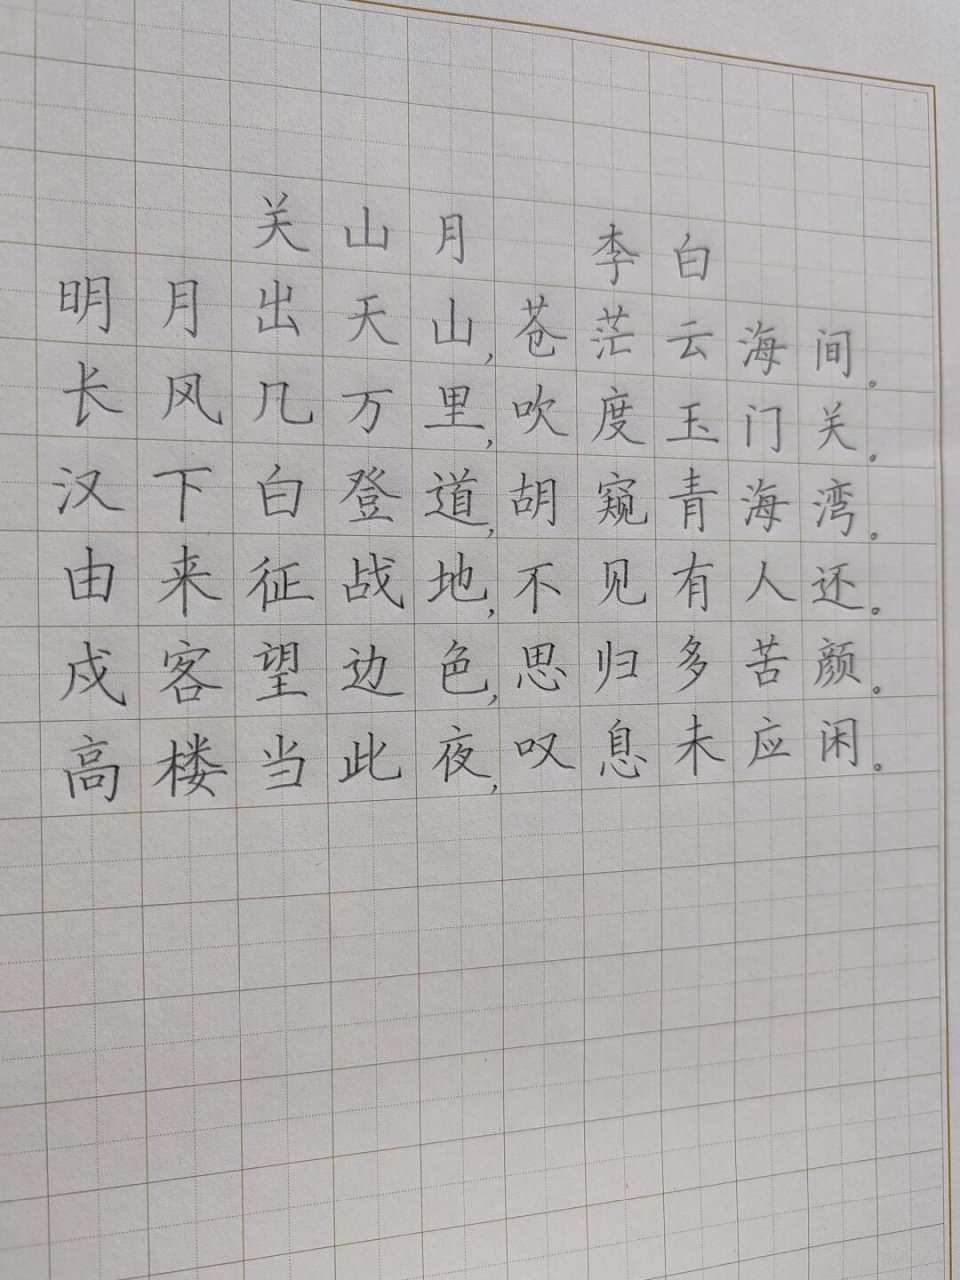 关山月 李白
明月出天山,苍茫云海间。
长风几万里,吹度玉门关。
汉下白登道,胡窥青海湾。
由来征战地,不见有人还。
戍客望边色,思归多苦颜。
高楼当此夜,叹息未应闲。